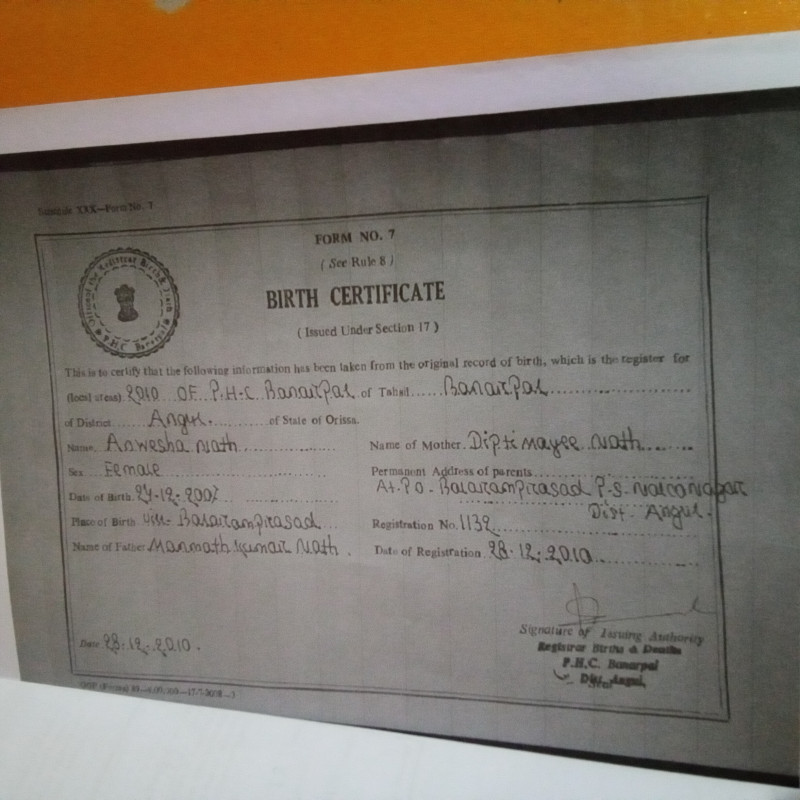 Schedule XXX—Form No. 7
FORM NO. 7
( See Rule 8 )
BIRTH CERTIFICATE
( Issued Under Section 17 )
This is to certify that the following information has been taken from the original record of birth, which is the register for
(local areas) 2010 OF P.H.C Banarpal of Tahsil Banarpal
of District Angul of State of Orissa.
Name Anwesha Nath
Sex Female
Date of Birth 27-12-2007
Place of Birth Vill- Balarampirasad
Name of Father Manmath Kumar Nath
Name of Mother Diptimayee Nath
Permanent Address of parents
At.Po- Balarampirasad P-S- Nalconagar
Dist- Angul.
Registration No. 1132
Date of Registration 28.12.2010
Date 28.12.2010.
Signature of Issuing Authority
Registrar Births & Deaths
P.H.C. Banarpal
Dist. Angul,